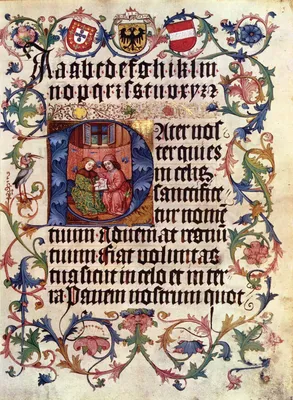 Aaabcdefghiklm
nopqrrsstuvxyz
PAter nos
ter qui es
in celis
sanctifice
tur nomē
tuum Adueniat regnū
tuum fiat voluntas
tua sicut in celo et in ter
ra Panem nostrum quot